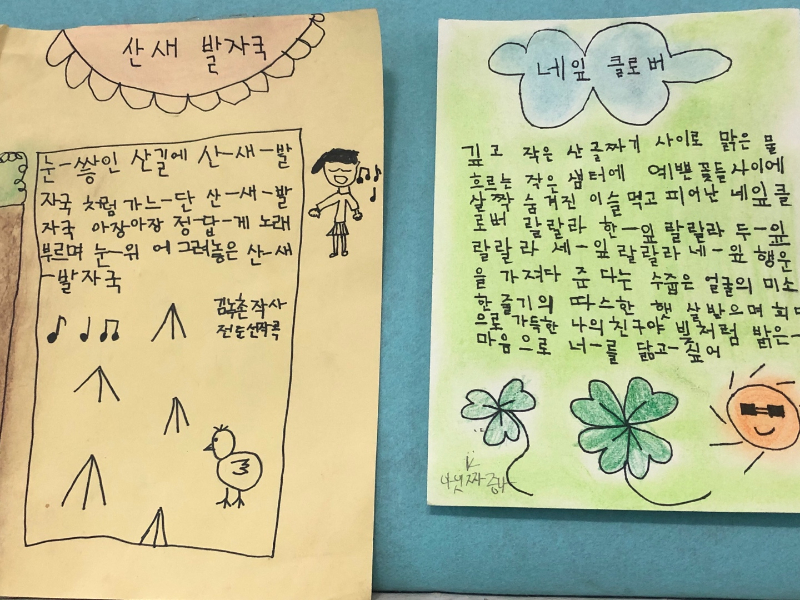 산새 발자국
눈-쌓인 산길에 산-새-발
자국 처럼 가느-단 산-새-발
자국 아장아장 정-답-게 노래
부르며 눈-위 에 그려놓은 산-새
-발자국
작사
작곡
네잎 클로버
깊고 작은 산골짜기 사이로 맑은 물
흐르는 작은 샘터에 예쁜 꽃들 사이에
살짝 숨겨진 이슬 먹고 피어난 네잎 클
로버 랄랄라 한-잎 랄랄라 두-잎
랄랄라 세-잎 랄랄라 네-잎 행운
을 가져다 준 다는 수줍은 얼굴의 미소
한 줄기의 따스한 햇 살 받으며 희
으로 가득한 나의 친구야 빛처럼 밝은-
마음 으로 너-를 닮고-싶어